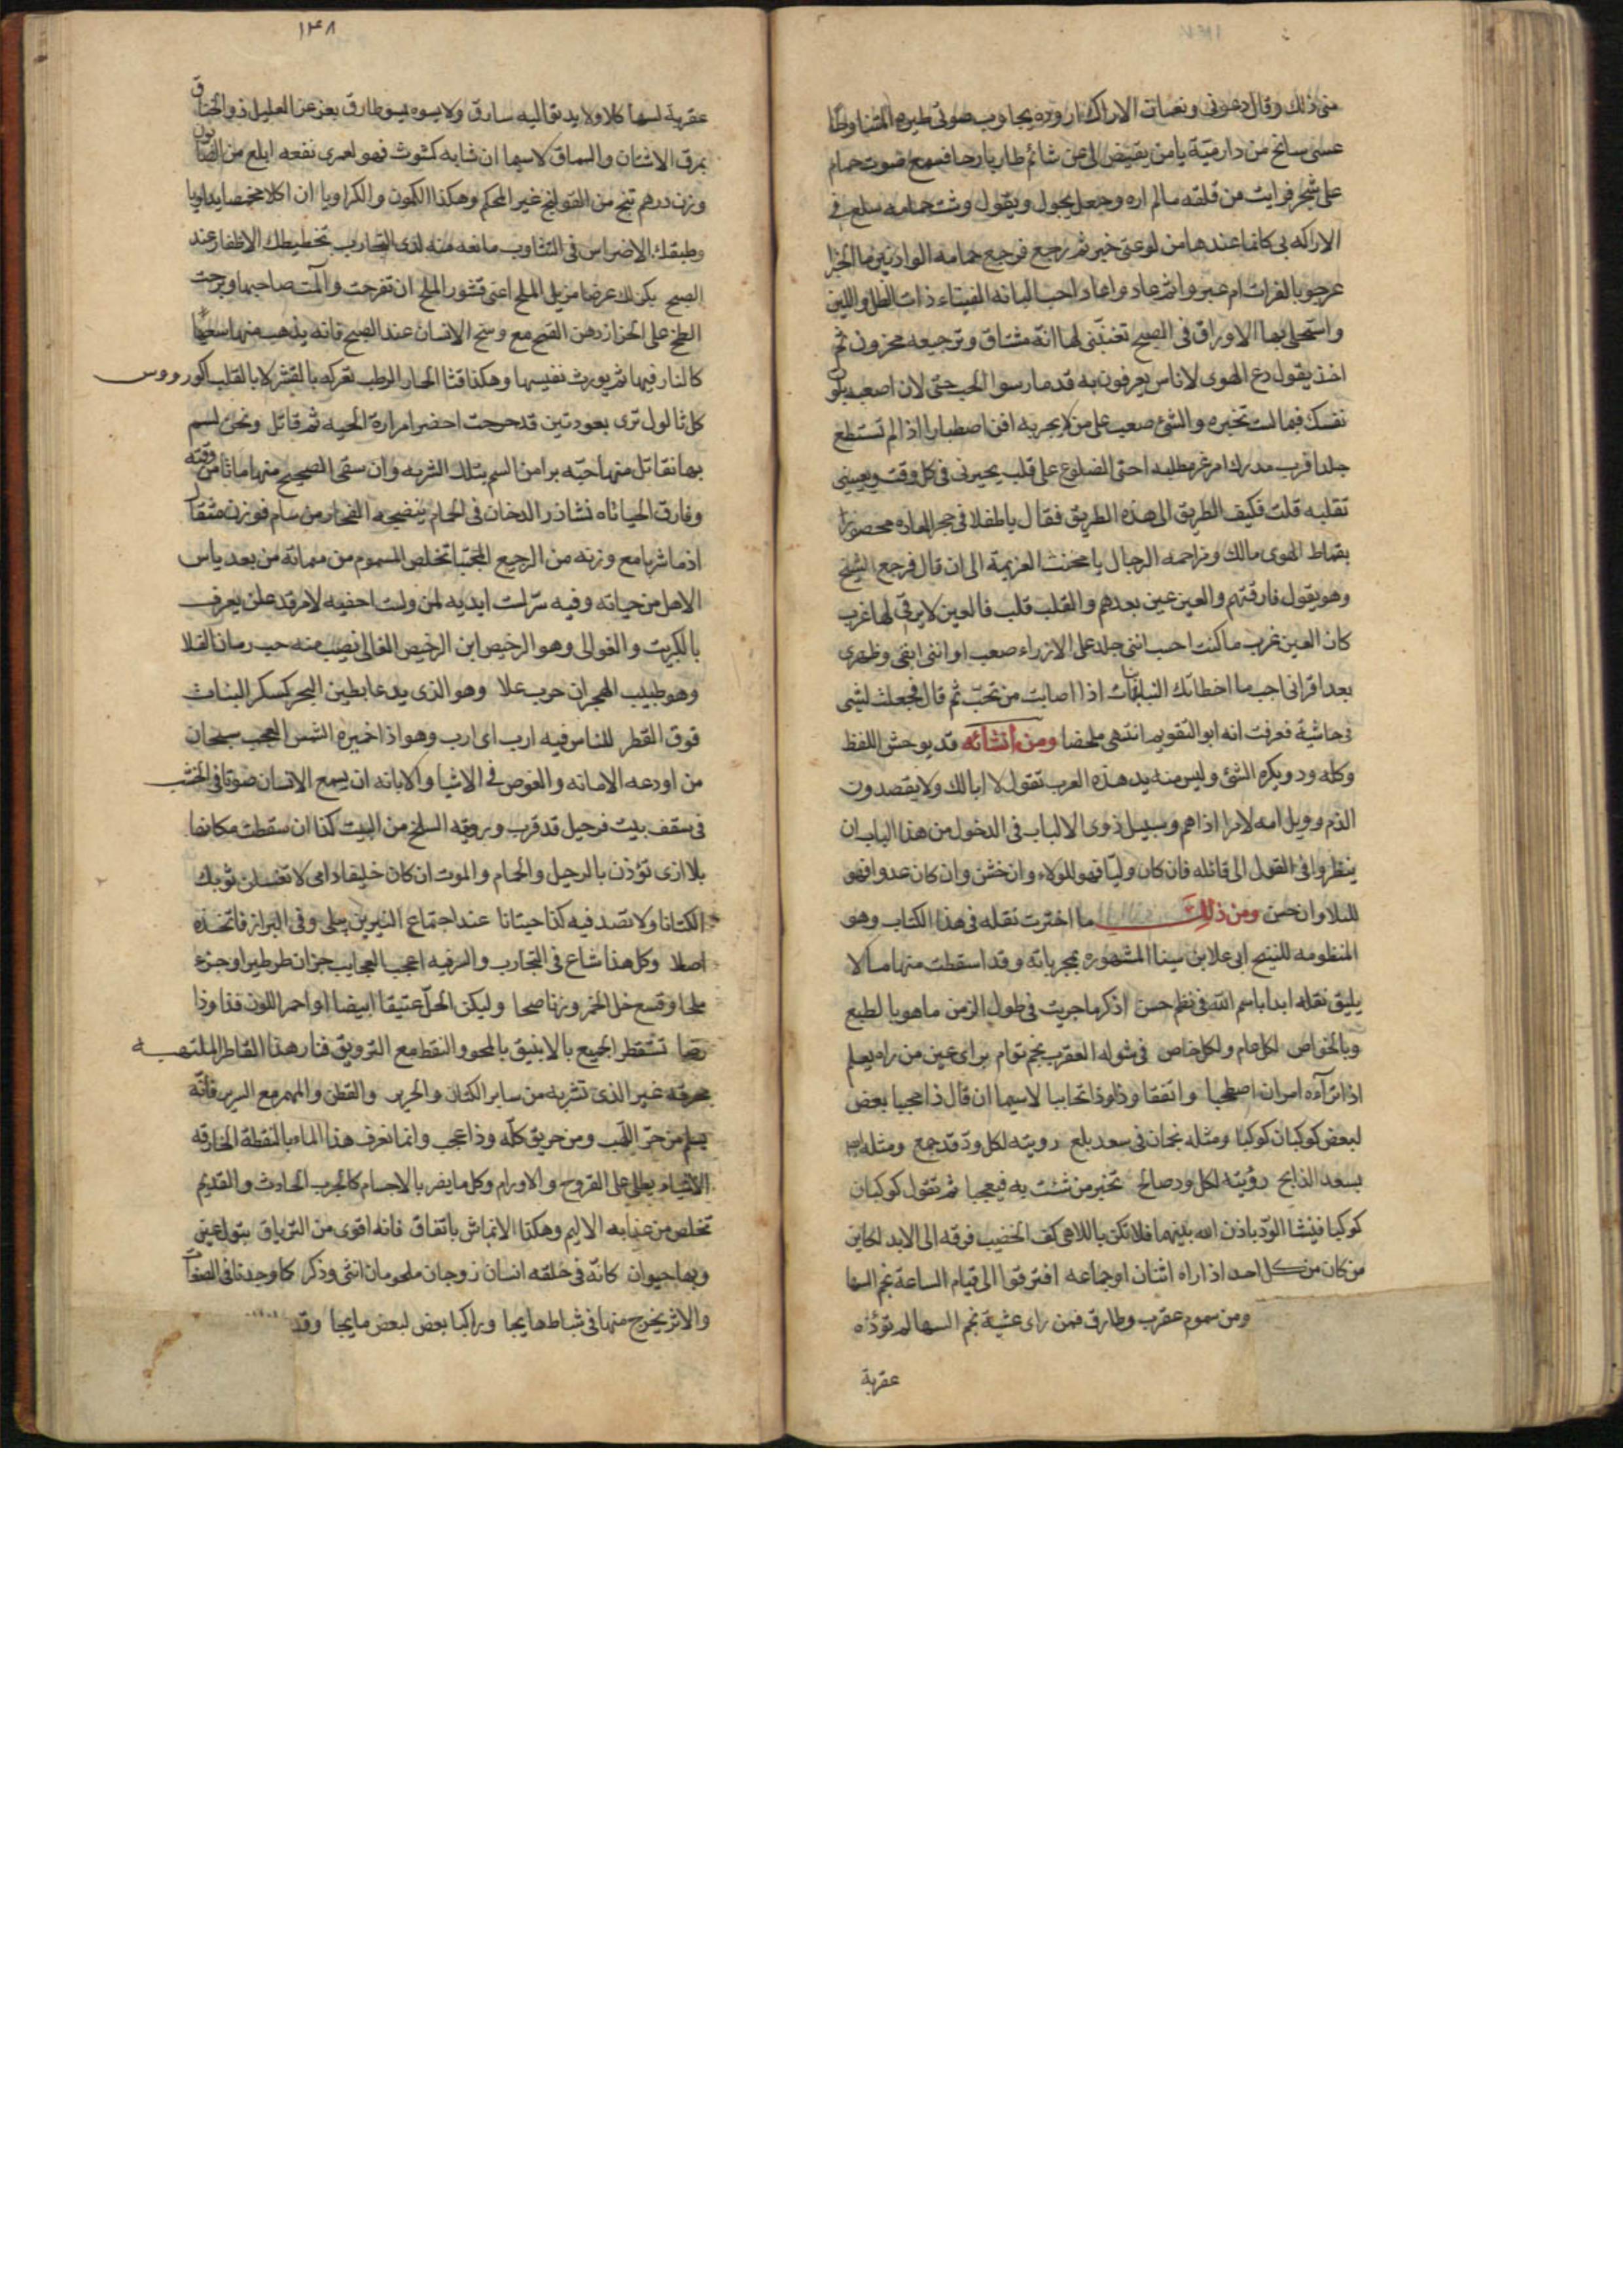 منى ذلك وقال دعونى ونغمات الاراك يجاوب صوتى طيره
عسى سانح من دار ميّة يامن يقيض لى من شائم طار بارحا فسمع صوت حمام
على شجر فرايت من قلقه ما لم اره وجعل يجول ويقول وشت حمامه سلع فى
الاراكه بى كانما عندها من لوعتى خبر ثم رجع فرجع حمامه الواديين ما الخبرا
عرجو بالفرات ام عبروا احب البانه الفيناء ذات الظل واللين
واستحلى بها الاوراق فى الصبح تغنّينى لها انّه مشتاق وترجيعه محزون ثم
اخذ يقول دع الهوى لاناس يعرفون به قد مارسوا الحب حتى لان اصعبه بلوت
نفسك فيما لست تخبره والشئ صعب على من لا يجربه افن اصطبارا اذ لم تستطع
جلدا فرب مدرك امر عز مطلبه احنى الضلوع على قلب يحيرنى فى كل وقت ويعيينى
تقلبه قلت فكيف الطريق الى هذه الطريق فقال يا طفلا فى حجر العاده محصورا
بقماط الهوى مالك ومزاحمه الرجال يا مخنث العزيمة الى ان قال فرجع الشيخ
وهو يقول فارقتهم والعين عين بعدهم والقلب قلب فالعين لا يرقى لها غرب
كان العين غرب ما كنت احسب اننى جلد على الارزاء صعب او اننى ابقى وظهرى
بعد اقرانى اجب ما اخطاتك النايبات اذا اصابت من تحبّ ثم قال فجعلت لشى
فى حاشية فعرفت انه ابو التقويم انتهى ملخصا ومن انشائه قد يوحش اللفظ
وكله ود ويكره الشئ وليس منه بد هذه العرب تقول لا ابا لك ولا يقصدون
الذم وويل امه لامرا اذاهم وسبيل ذوى الالباب فى الدخول من هذا الباب ان
ينظروا فى القول الى قائله فان كان وليّا فهو للولاء وان خشن وان كان عدوا فهو
للبلا وان حسن ومن ذلك ما اخترت نقله فى هذا الكتاب وهو
المنظومه للشيخ ابى على بن سينا المشهوره بمجرباته وقد اسقطت منها ما لا
يليق نقله ابدا باسم الله فى نظم حسن اذكر ما جربت فى طول الزمن ما هو بالطبع
وبالخواص لكل عام ولكل خاص فى شوله العقرب نجم توام براى عين من راه يعلم
اذا تراءه امران اصطحبا واتفقا وذا وذا تحاببا لاسيما ان قال ذا محببا بعض
لبعض كوكبان كوكبا ومثله نجمان فى سعد بلع رويته لكل ودّ قد جمع ومثله
بسعد الذابح رؤيته لكل ود صالح تخير من شئت به فيعجبا ثم تقول كوكبان
كوكبا فينشا الودّ باذن الله بينهما فلا تكن باللاهى كف الخضيب فرقه الى الابد
من كان من كل احد اذا راه اثنان او جماعه افترقوا الى قيام الساعة نجم السها
ومن سموم عقرب وطارق فمن راى عشية نجم السها لم تؤذه
عقربة
١٤٨
عقربة لسها كلا ولا يدنو اليه سارق ولا يسوه بسو طارق
بمرق الاشنان والسماق لاسيما ان شابه كشوث فهو لعمرى نفعه ابلغ من الصابون
وزن درهم تنج من القولنج غير المحكم وهكذا الكمون والكراويا ان اكلا
وطبقك الاضراس فى التثاوب مانعه منه لدى التجارب تخطيطك الاظفار عند
الصبح يكن لك عرضا مزيل الملح اعنى قشور الملح ان تقرحت وآلمت صاحبها وبرحت
الطخ على الحزاز دهن القمح مع وسخ الاسنان عند الصبح فانه يذهب منها
كالنار فيها ثم يورث نفيسها وهكذا قثا الحمار الرطب تعركه بالقشر لا بالقلب اكورووس
كل ثالول ترى بعود تين قد حرجت احضر امرارة الحيه ثم قاتل ونحن لسم
بها نقاتل منها حبّه برا من السم بتلك الشربه وان سقى الصحيح منها مات من وقته
وفارق الحياة نشاذر الدخان فى الحمام ينضجه الفخار من سام فوزن مثقال
اذا ما شربا مع وزنه من الرجيع المجتبا تخلص المسموم من مماته من بعد ياس
الاهل من حياته وفيه سرّ لست ابديه لمن ولست اخفيه لامر قد علن يعرف
بالكبريت والغوالى وهو الرخيص ابن الرخيص الغالى نصيب منه حب رمان القلا
وهو طبيب الهجر ان حرب علا وهو الذى يدعا بطين البحر كسكر النبات
فوق القطر للناس فيه ارب اى ارب وهو اذا خميرة الشمس العجب سبحان
من اودعه الامانه والغوص فى الاشيا والابانه ان يسمع الانسان صوتا فى الخشب
فى سقف بيت فرحيل قد قرب ورويته السلخ من البيت كذا ان سقطت مكانها
بلا اذى تؤذن بالرحيل والحمام والموت ان كان خليقا دامى لا تغسلن ثوبك
الكتانا ولا تصد فيه كذا حيتانا عند اجتماع النيرين يبلى وفى البراز فاتخذه
اصلا وكل هذا شاع فى التجارب والسر فيه اعجب العجايب جزان طرطير او جزء
ملحا وقسع خل الخمر وزنا صحا وليكن الخلّ عتيقا ابيضا او احمر اللون فذا وذا
رضا تستقطر الجميع بالانبيق بالمحو والنقط مع الترويق فنار هذا القاطر الملتهبه
محرقه غير الذى تشربه من ساير الكتان والحرير والقطن والمهر مع السرير فانّه
يسلم من حرّ اللهب ومن حريق كلّه وذا عجب وانما نعرف هذا الماء بالنقطة الخارقه
الاشياء يطلى على القروح والاورام وكل ما يضر بالاجسام كالجرب الحادث والقديم
تخلص من عذابه الاليم وهكذا الانماش باتفاق فانه اقوى من الترياق
وبها حيوان كانّه فى خلقه انسان زوجان ملحومان انثى وذكر كما وجدنا فى الصفات
والاثر يخرج منها فى شباط هايجا وراكبا بعض لبعض مايجا وقد